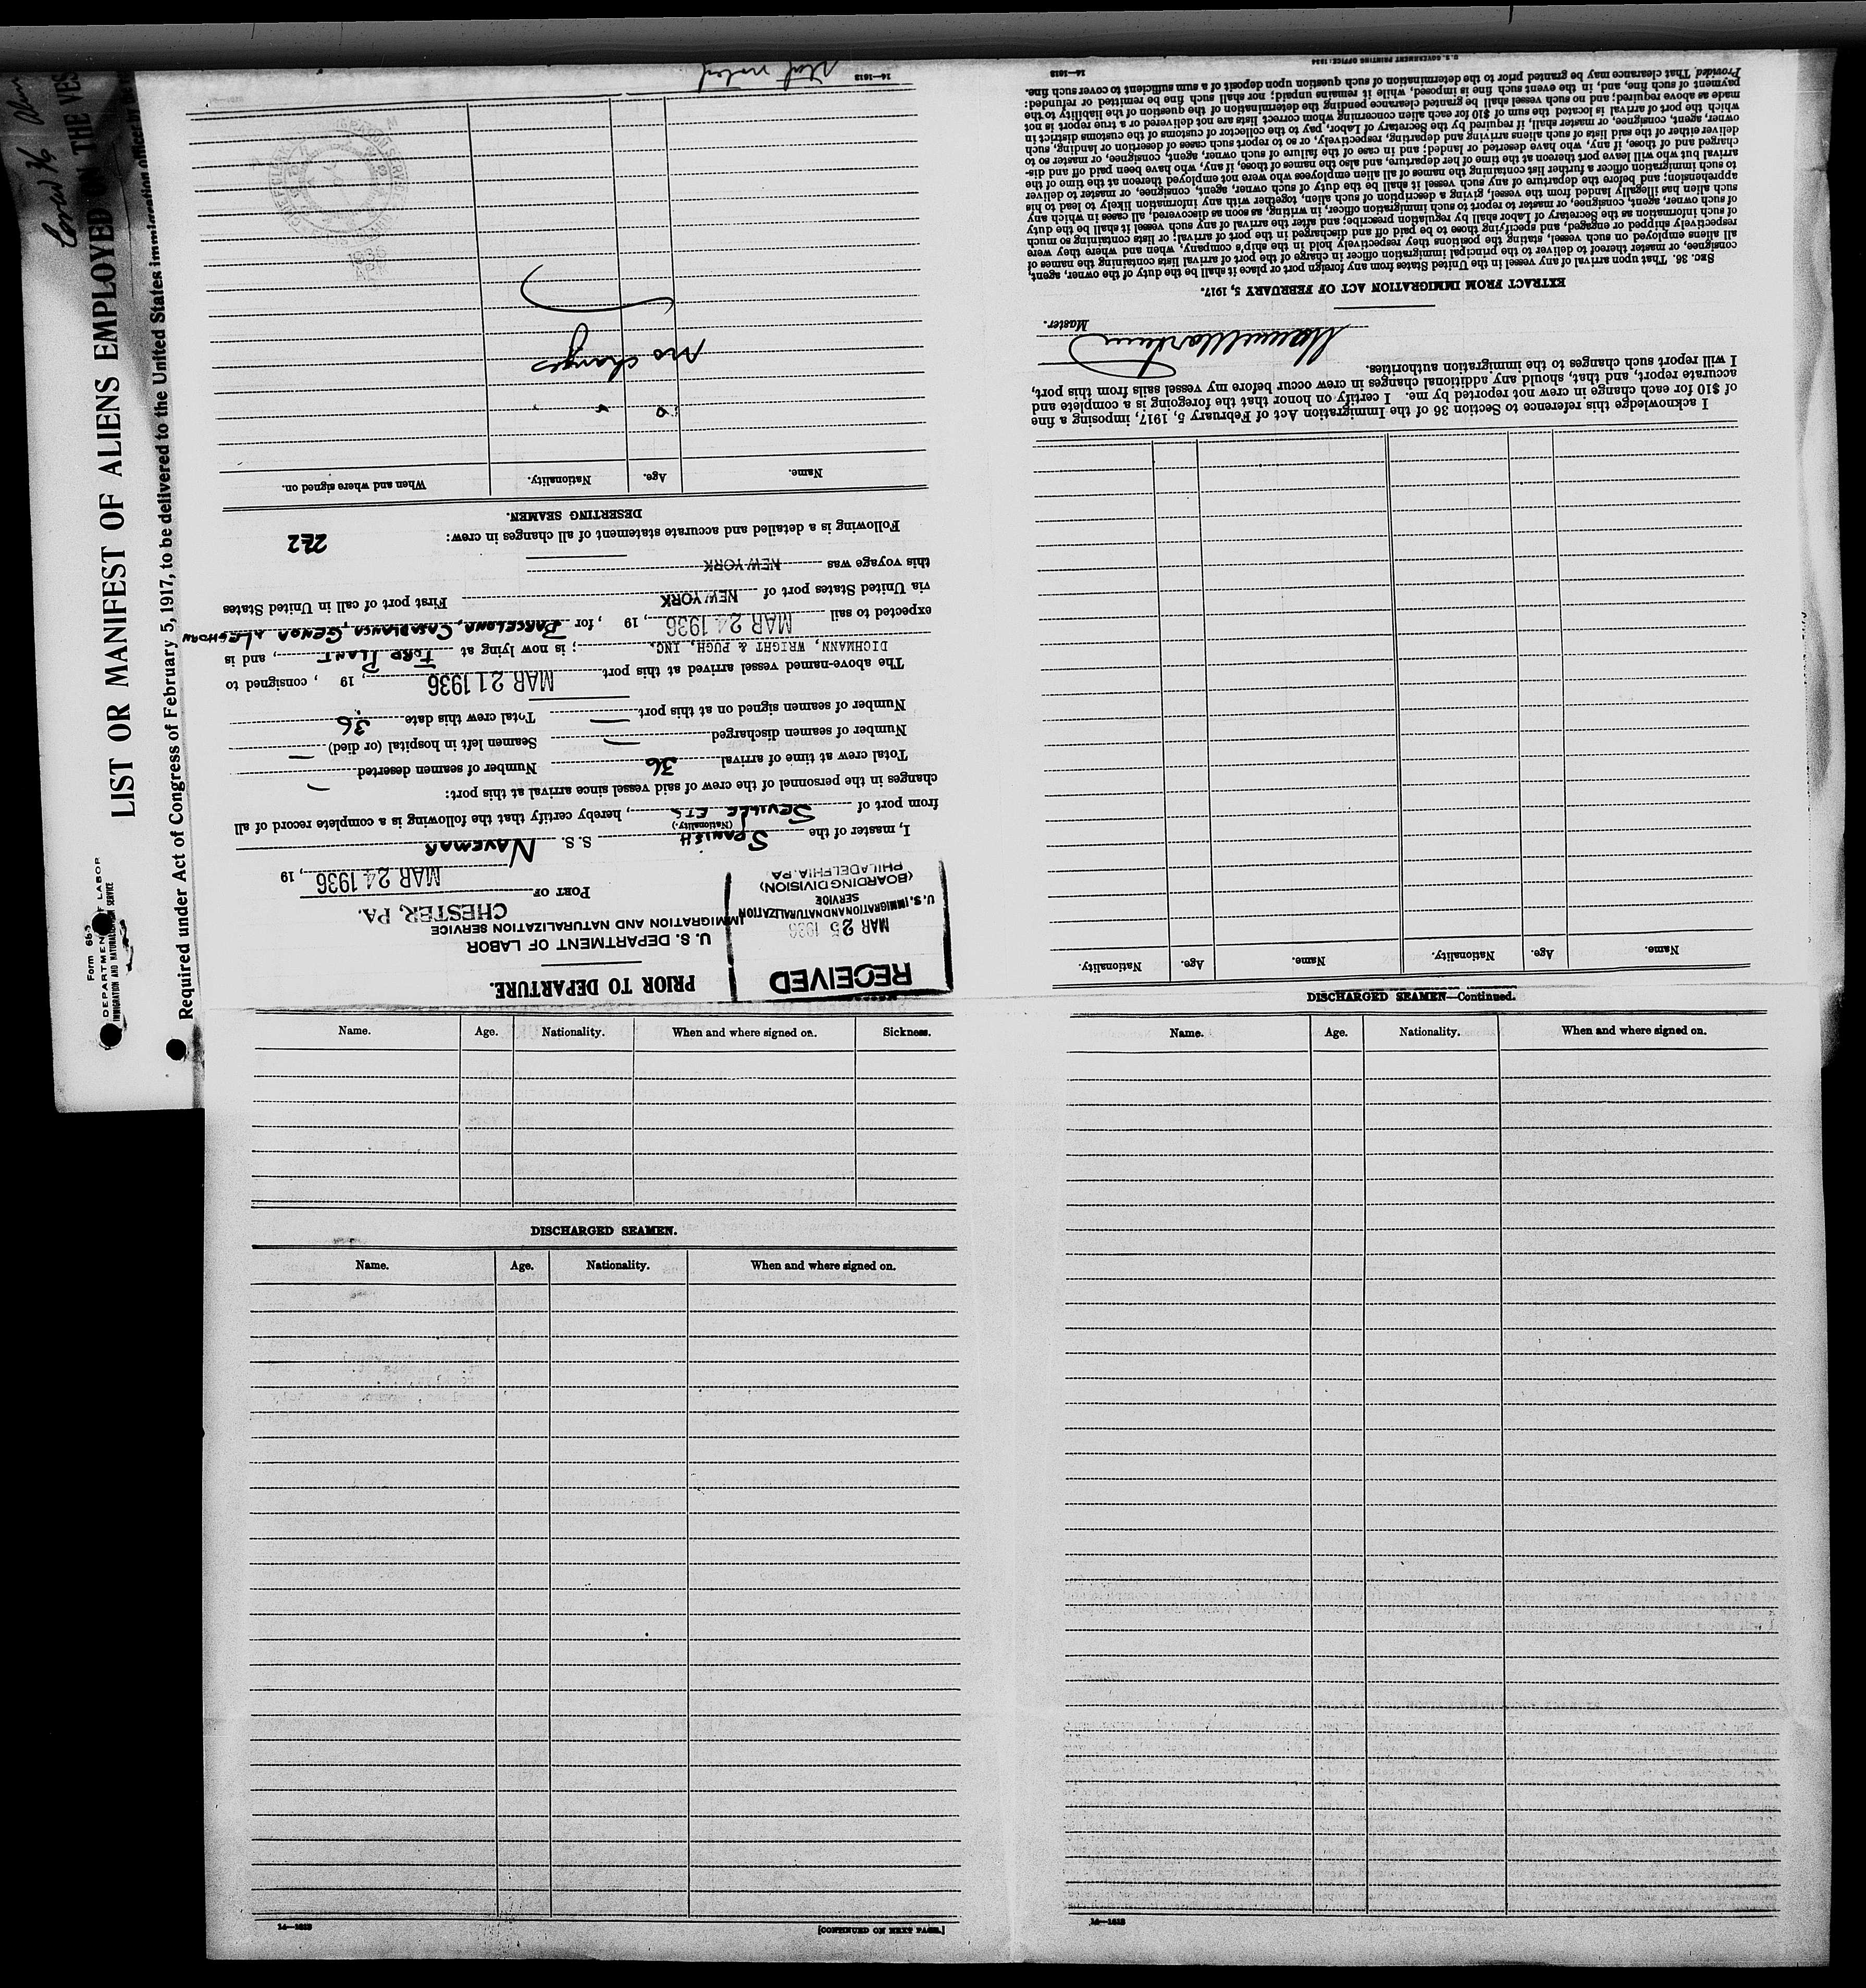 Form 68
U. S. DEPARTMENT OF LABOR
IMMIGRATION AND NATURALIZATION SERVICE
LIST OR MANIFEST OF ALIENS EMPLOYED ON THE VES
Required under Act of Congress of February 5, 1917, to be delivered to the United States immigration officer by
PRIOR TO DEPARTURE.
RECEIVED
MAR 25 1936
U. S. IMMIGRATION AND NATURALIZATION
SERVICE
(BOARDING DIVISION)
PHILADELPHIA, PA.
U. S. DEPARTMENT OF LABOR
IMMIGRATION AND NATURALIZATION SERVICE
PORT OF CHESTER, PA.
MAR 24 1936, 19
I, master of the SPANISH S. S. NAVEMAR
(Nationality.)
from port of SEVILLE ETS, hereby certify that the following is a complete record of all
changes in the personnel of the crew of said vessel since arrival at this port:
Total crew at time of arrival 36 Number of seamen deserted —
Number of seamen discharged — Seamen left in hospital (or died) —
Number of seamen signed on at this port — Total crew this date 36
The above-named vessel arrived at this port MAR 21 1936, 19 , consigned to
DICHMANN, WRIGHT & PUGH, INC. ; is now lying at FORD PLANT, and is
expected to sail MAR 24 1936, 19 , for BARCELONA, CASABLANCA, GENOA & LEGHORN
via United States port of NEW YORK First port of call in United States
this voyage was NEW YORK
Following is a detailed and accurate statement of all changes in crew:
222
DESERTING SEAMEN.
Name. Age. Nationality. When and where signed on.
No changes
14—1613
Name. Age. Nationality. When and where signed on. Sickness.
DISCHARGED SEAMEN.
Name. Age. Nationality. When and where signed on.
14—1613 [CONTINUED ON NEXT PAGE.]
DISCHARGED SEAMEN—Continued.
Name. Age. Nationality. When and where signed on.
14—1613
Name. Age. Nationality. Name. Age. Nationality.
I acknowledge this reference to Section 36 of the Immigration Act of February 5, 1917, imposing a fine
of $10 for each change in crew not reported by me. I certify on honor that the foregoing is a complete and
accurate report, and that, should any additional changes in crew occur before my vessel sails from this port,
I will report such changes to the immigration authorities.
Master.
EXTRACT FROM IMMIGRATION ACT OF FEBRUARY 5, 1917.
SEC. 36. That upon arrival of any vessel in the United States from any foreign port or place it shall be the duty of the owner, agent,
consignee, or master thereof to deliver to the principal immigration officer in charge of the port of arrival lists containing the names of
all aliens employed on such vessel, stating the positions they respectively hold in the ship's company, when and where they were
respectively shipped or engaged, and specifying those to be paid off and discharged in the port of arrival; or lists containing so much
of such information as the Secretary of Labor shall by regulation prescribe; and after the arrival of any such vessel it shall be the duty
of such owner, agent, consignee, or master to report to such immigration officer, in writing, as soon as discovered, all cases in which any
such alien has illegally landed from the vessel, giving a description of such alien, together with any information likely to lead to his
apprehension; and before the departure of any such vessel it shall be the duty of such owner, agent, consignee, or master to deliver
to such immigration officer a further list containing the names of all alien employees who were not employed thereon at the time of the
arrival but who will leave port thereon at the time of her departure, and also the names of those, if any, who have been paid off and dis-
charged and of those, if any, who have deserted or landed; and in case of the failure of such owner, agent, consignee, or master so to
deliver either of the said lists of such aliens arriving and departing, respectively, or so to report such cases of desertion or landing, such
owner, agent, consignee, or master shall, if required by the Secretary of Labor, pay to the collector of customs of the customs district in
which the port of arrival is located the sum of $10 for each alien concerning whom correct lists are not delivered or a true report is not
made as above required; and no such vessel shall be granted clearance pending the determination of the question of the liability to the
payment of such fine, and, in the event such fine is imposed, while it remains unpaid; nor shall such fine be remitted or refunded:
Provided, That clearance may be granted prior to the determination of such question upon deposit of a sum sufficient to cover such fine.
14—1613 U. S. GOVERNMENT PRINTING OFFICE: 1934